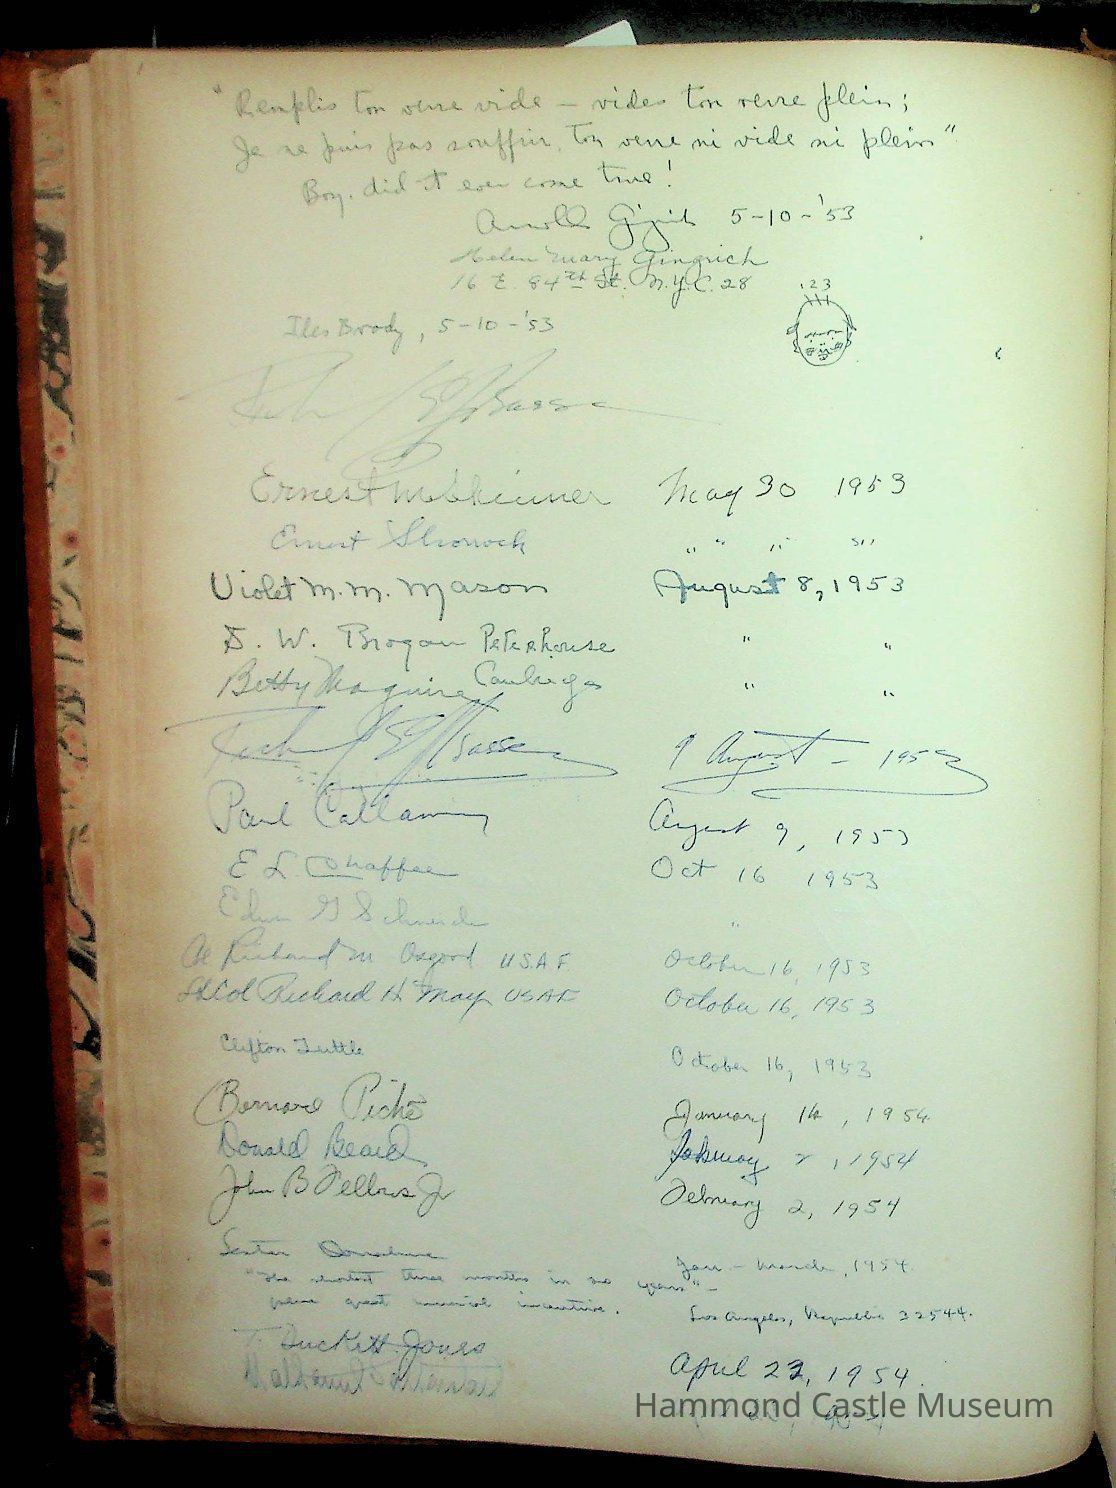 "Remplis ton verre vide — vides ton verre plein;
Je ne puis pas souffrir ton verre ni vide ni plein"
Boy, did it ever come true!
Arnold Gingrich 5-10-'53
Helen Mary Gingrich
16 E. 84th St. N.Y.C. 28
123
Iles Brody, 5-10-'53
Ernest May 30 1953
Ernest " " " "
Violet M. M. Mason August 8, 1953
D. W. Brogan Peterhouse " "
Betty Maguire Cambridge " "
9 August — 1953
Paul Callaway August 9, 1953
E L Chaffee Oct 16 1953
Edwin G Schneider "
Richard M Osgood U.S.A.F. October 16, 1953
Lt Col Richard H May USAF October 16, 1953
Clifton Tuttle October 16, 1953
Bernard Piché January 14, 1954
Donald Beard February 2, 1954
John B Fellows Jr February 2, 1954
Lester Donahue Jan – March, 1954.
"The shortest three months in years" –
great musical incentive. Los Angeles, Republic 32544.
T. Duckett Jones
April 22, 1954.
Hammond Castle Museum